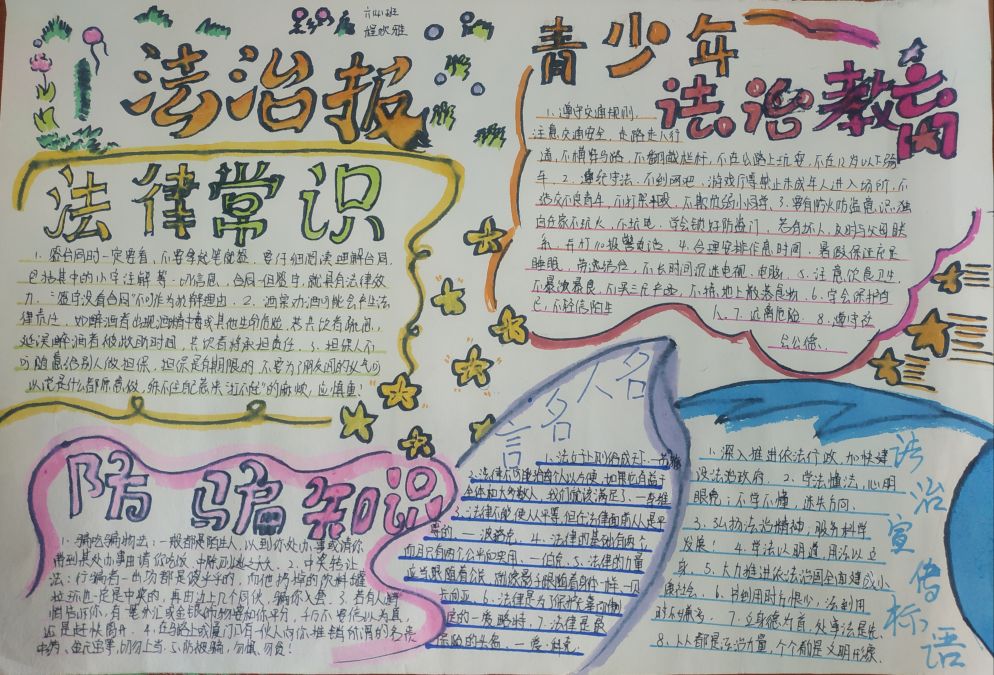 六(4)班
程欢雅
法治报
青少年
法治教育
法律常识
1.签合同时一定要看,不要拿起笔就签,要仔细阅读理解合同,
包括其中的小字注解等
力,“签字没看合同”不可作为辩解理由。2.酒
律责任,如醉酒者出现酒精中毒或其他生命危险,若共饮者疏忽,
延误醉酒者被救助时间,共饮者将承担责任。3.担保人不
可随意给别人做担保,担保是有期限的,不要为了朋友间的义气可
应慎重!
1.遵守交通规则,
注意交通安全,走路走人行
道,不横穿马路,不翻越栏杆,不在公路上玩耍,不在
车。2.遵纪守法,不到网吧、游戏厅等禁止未成年人进入场所,不
不打架斗殴,不欺负弱小同学。3.要有防火防盗意识,独
自在家不玩火,不玩电,学会锁好防盗门,若有坏人,及时与父母联
系,有打110报警电话。4.合理安排作息时间,暑假保证充足
睡眠,劳逸结合,不长时间沉迷电视、电脑。5.注意饮食卫生,
不暴饮暴食,不买三无产品,不捡地上散落食物。6.学会保护自
己,不轻信陌生
人。7.远离危险。8.遵守社
会公德。
防骗知识
1.骗吃骗物法:一般都是陌生人,以到你处办事或请你
带到某处办事由请你吃饭,中
2.中奖转让
法:行骗者一出场都是彼此
拉环也一定是中奖的,再由边上几个同伙,骗你入套。3.若有人
悄悄告诉你,有一笔外汇或金银饰物要和你平分,千万不要信以为真,
还是赶快离开。4.在马路上或厦门口有一伙人向你推销所谓的名贵
中药、金元宝等,切勿上当。5.防被骗,勿慎,勿贪!
名人名言
2.法律不可能给所有人以方便,如果它有益于
全体和大多数人,我们就该满足了。
3.法律不能使人人平等,但在法律面前人人是平
等的。一波洛克。4.法律的基础有两个,
而且只有两个公平和实用。一伯克。5.法律的力量
应当跟随着公民,就像影子跟随着身体一样。一贝
卡利亚。6.法律是为了保护
7.法律是最
保险的头盔。一爱·科克
法治宣传标语
1.深入推进依法行政,加快建
设法治政府。2.学法懂法,心明
眼亮;不学不懂,迷失方向。
3.弘扬法治精神,服务科学
发展!4.学法以明道,用法以立
身。5.大力推进依法治国全面建成小
康社会。6.书到用时方恨少,法到用
时
7.立身德为首,处事法是先。
8.人人都是法治力量,个个都是文明形象。